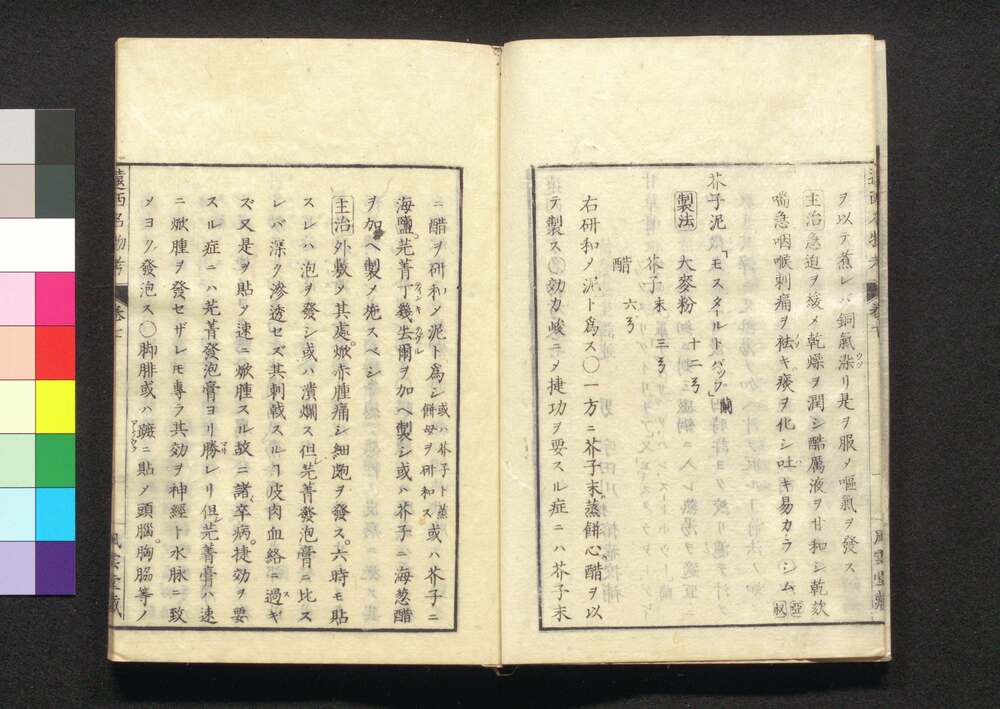 ヲ以テ煮レバ銅氣染リ是ヲ服メ嘔氣ヲ發ス
主治急迫ヲ緩メ乾燥ヲ潤シ酷厲液ヲ甘和シ乾欬
喘急咽喉刺痛ヲ袪キ痰ヲ化シ吐キ易カラシム
芥子泥「モスタールトパップ」蘭
製法 大麥粉 十二㕪
芥子末 三㕪
醋 六㕪
右研和メ泥ト爲ス〇一方ニ芥子末蒸餅心醋ヲ以
テ製ス〇効力峻ニメ捷功ヲ要スル症ニハ芥子末
ニ醋ヲ研和メ泥ト爲シ或ハ芥子ト蒸餅母ヲ研和ス或ハ芥子ニ
海鹽芫菁丁幾去爾ヲ加ヘ製シ或ハ芥子ニ海葱醋
ヲ加ヘ製メ施スベシ
主治外敷メ其處焮赤腫痛シ細皰ヲ發ス六時モ貼
スレハ泡ヲ發シ或ハ潰爛ス但芫菁發泡膏ニ比ス
レバ深ク滲透セズ其刺戟スルヿ皮肉血絡ニ過ギ
ズ又是ヲ貼メ速ニ焮腫スル故ニ諸卒病捷効ヲ要
スル症ニハ芫菁發泡膏ヨリ勝レリ但芫菁膏ハ速
ニ焮腫ヲ發セザレモ專ラ其効ヲ神經ト水脉ニ致
メヨク發泡ス〇脚腓或ハ蹠ニ貼メ頭腦胸脇等ノ
遠西名物考
卷七
風雲堂藏